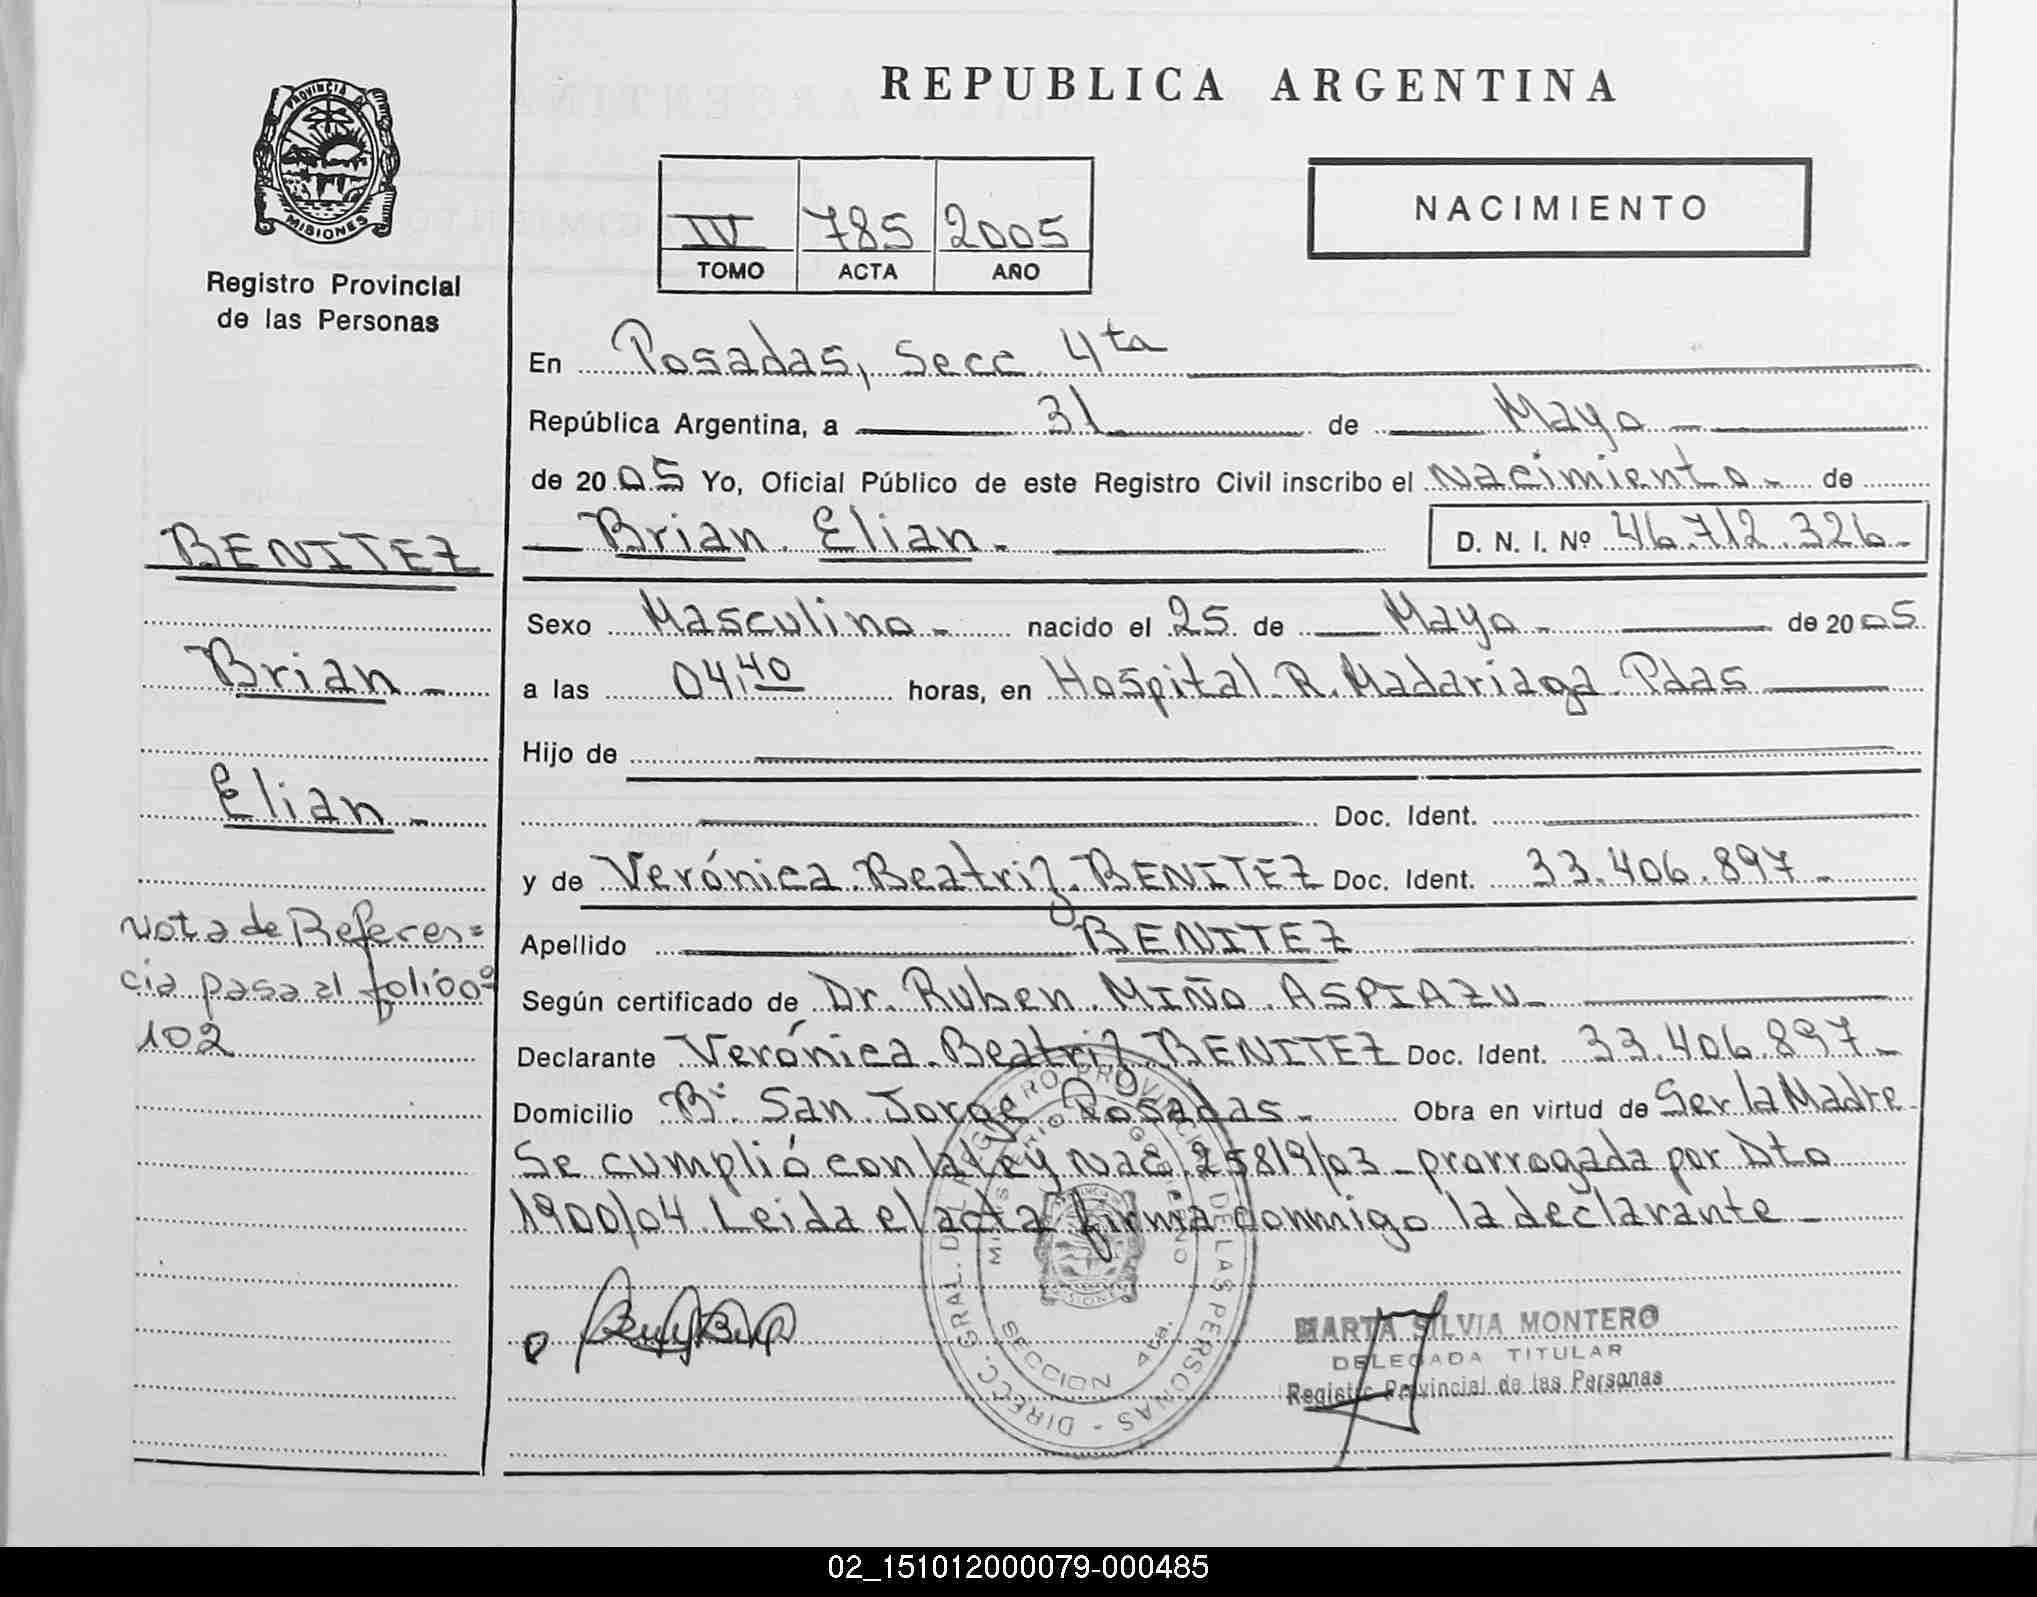 PROVINCIA DE
MISIONES
Registro Provincial
de las Personas
REPUBLICA ARGENTINA
IV 785 2005
TOMO ACTA AÑO
NACIMIENTO
En Posadas, Secc 4ta
República Argentina, a 31 de Mayo
de 2005 Yo, Oficial Público de este Registro Civil inscribo el Nacimiento de
Brian Elian D. N. I. Nº 46.712.326
Sexo Masculino nacido el 25 de Mayo de 2005
a las 04,40 horas, en Hospital R. Madariaga Pdas
Hijo de
Doc. Ident.
y de Verónica Beatriz BENITEZ Doc. Ident. 33.406.897
Apellido BENITEZ
Según certificado de Dr. Ruben MIÑO ASPIAZU
Declarante Verónica Beatriz BENITEZ Doc. Ident. 33.406.897
Domicilio Bº San Jorge Posadas Obra en virtud de Ser la Madre
Se cumplió con la Ley Nac. 25819/03 prorrogada por Dto
1900/04 Leida el acta firma conmigo la declarante
BENITEZ
Brian
Elian
Nota de Referen=
cia pasa al folio nº
102
DIRECC. GRAL. DEL REGISTRO PROVINCIAL DE LAS PERSONAS
SECCION 4ta.
MISIONES
MARTA SILVIA MONTERO
DELEGADA TITULAR
Registro Provincial de las Personas
02_151012000079-000485